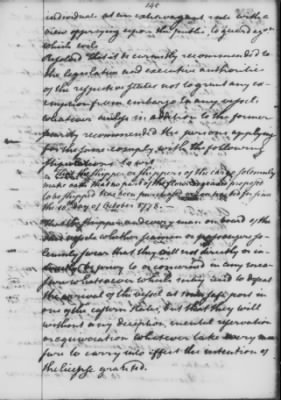 140
individual at an extravagant rate with a
view of preying upon the public, to guard against
which evil.
Resolved That it be earnestly recommended to
the legislative and executive authorities
of the respective states not to grant any ex-
emption from embargo to any vessel
whatsoever unless in addition to the former
security recommended the persons applying
for the same comply with the following
stipulations to wit
the shipper or shippers of the cargo solemnly
make oath that no part of the flour or grain proposed
to be shipped have been purchased or contracted for since
the 10 day of October 1778.
That the skipper and every man on board of the
said vessel whether seamen or passengers so-
lemnly swear that they will not directly or in-
directly be privy to or concerned in any mea-
sure whatsoever which may tend to defeat
the arrival of the vessel at some safe port in
one of the eastern States, but that they will
without any deception, mental reservation
or equivocation whatever take every mea-
sure to carry into effect the intention of
the license granted.